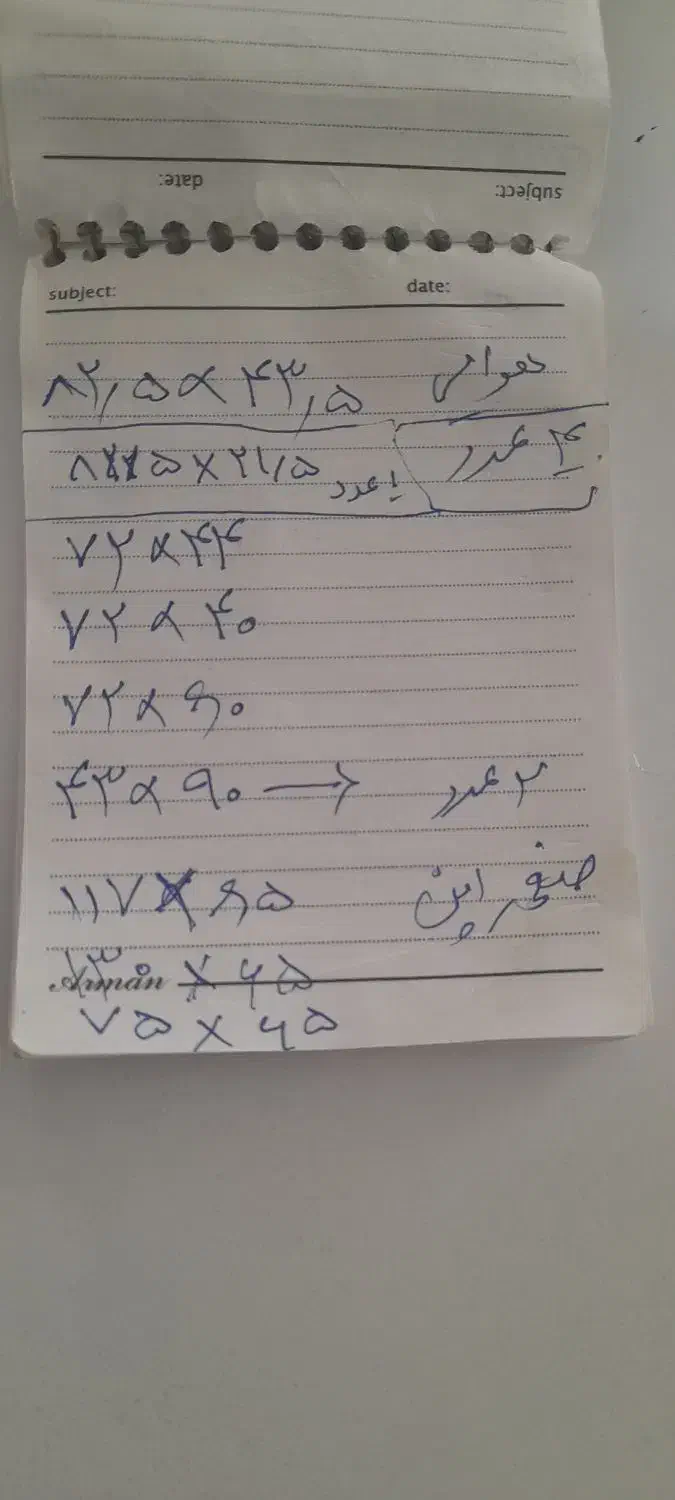 subject: date:
subject: date:
۸۲٫۵ × ۴۳٫۵
۴ عدد ۲۱٫۵ × ۱ عدد
۷۲ × ۴۴
۷۲ × ۴۰
۷۲ × ۶۰
۴۳ × ۹۰ → ۲ عدد
۱۱۷ × ۶۵
Arman × ۶۵
۷۵ × ۶۵